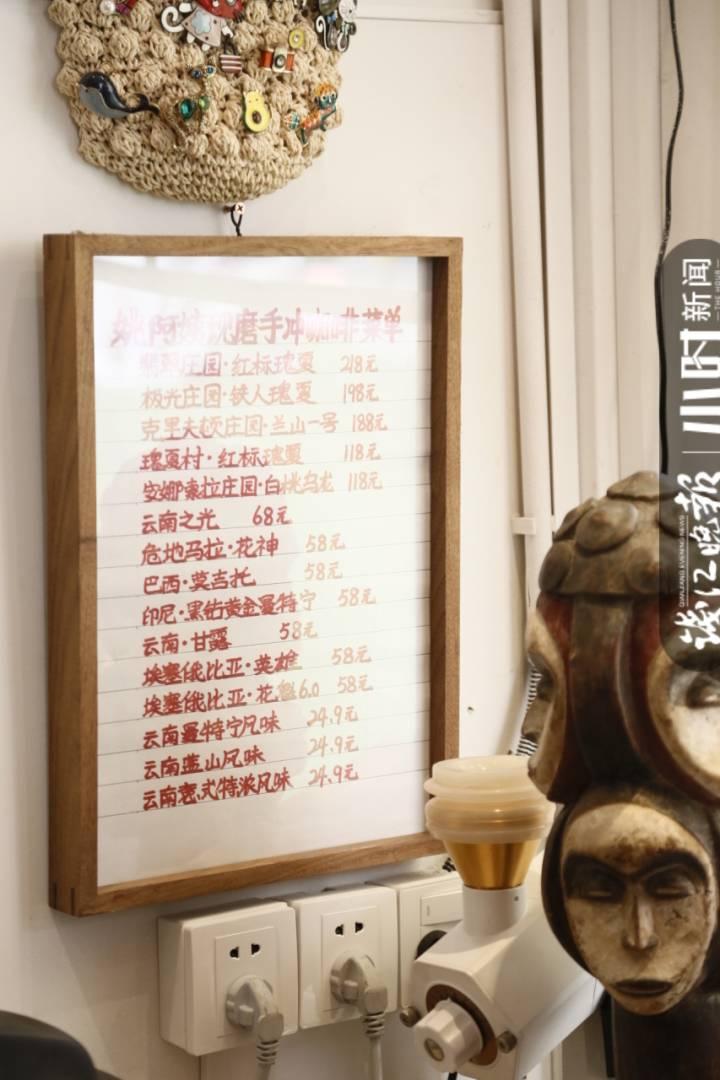 姚阿姨现磨手冲咖啡菜单
翡翠庄园·红标瑰夏 218元
极光庄园·铁人瑰夏 198元
克里夫顿庄园·兰山一号 188元
瑰夏村·红标瑰夏 118元
安娜索拉庄园·白桃乌龙 118元
云南之光 68元
危地马拉·花神 58元
巴西·莫吉托 58元
印尼·黑钻黄金曼特宁 58元
云南·甘露 58元
埃塞俄比亚·英雄 58元
埃塞俄比亚·花魁6.0 58元
云南曼特宁风味 24.9元
云南蓝山风味 24.9元
云南意式特浓风味 24.9元
钱江晚报
QIANJIANG EVENING NEWS
小时
新闻